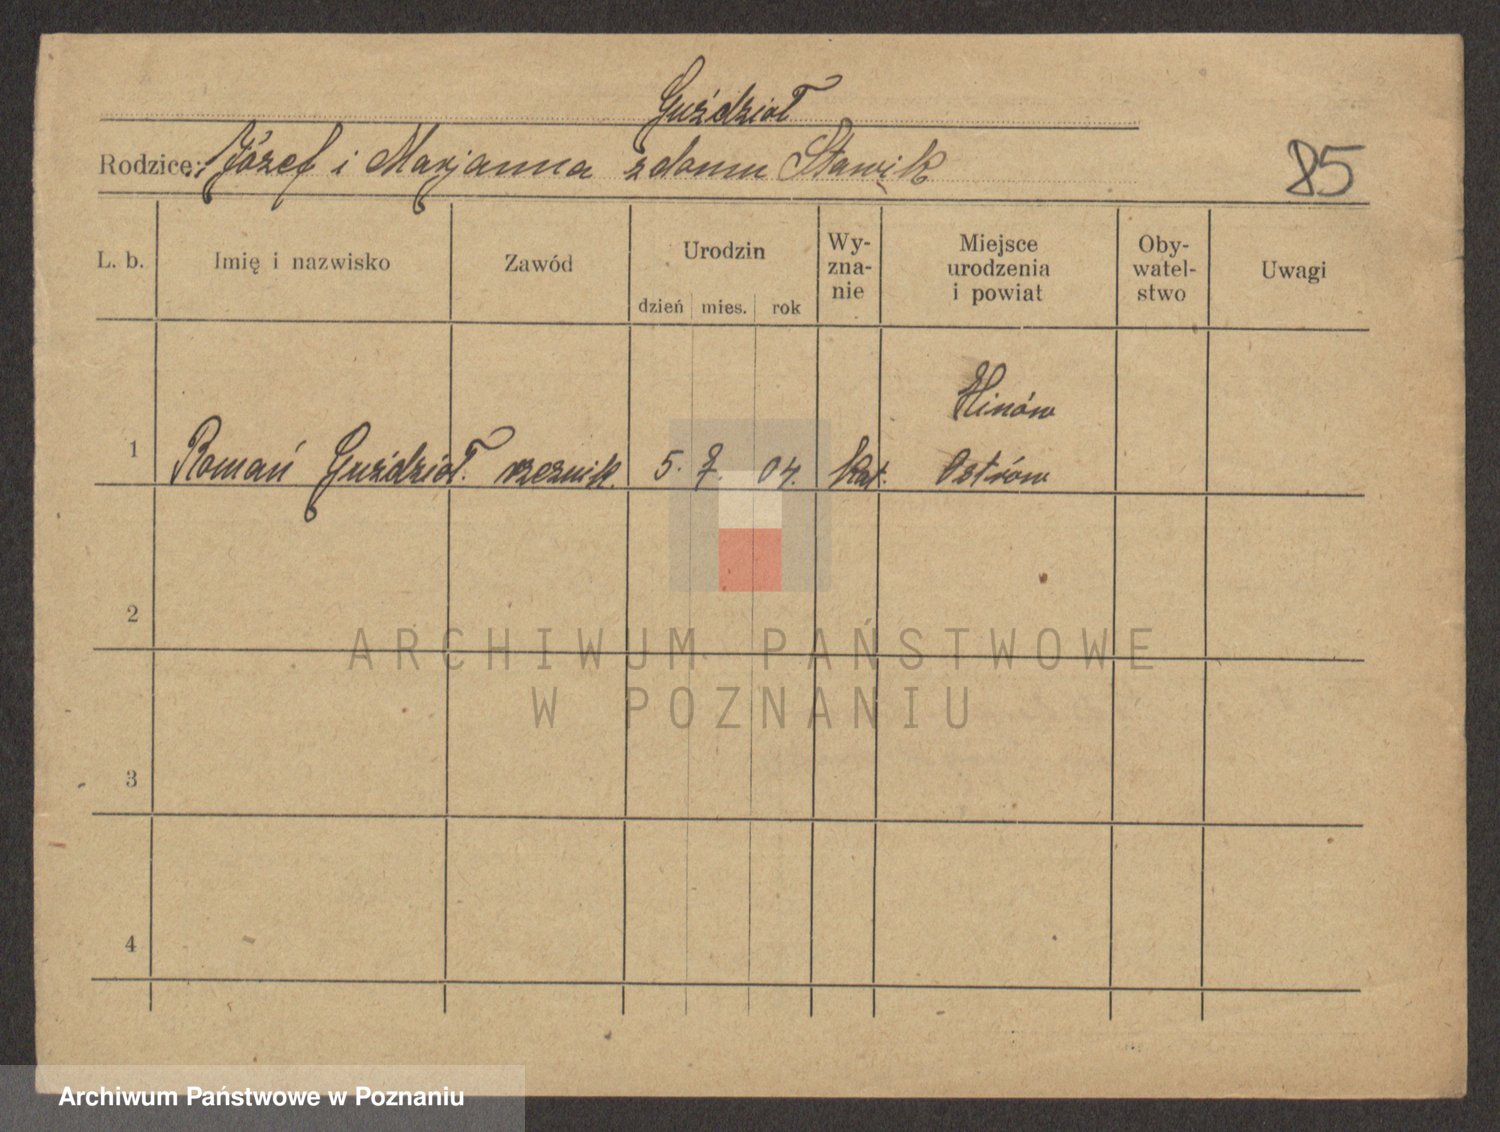 Guździoł
Rodzice: Józef i Marjanna z domu Stawik
85
L. b. Imię i nazwisko Zawód Urodzin dzień mies. rok Wy-zna-nie Miejsce urodzenia i powiat Oby-watel-stwo Uwagi
1 Roman Guździoł. rzeźnik. 5. 7. 04. kat. Ostrów
2
3
4
ARCHIWUM PAŃSTWOWE
W POZNANIU
Archiwum Państwowe w Poznaniu